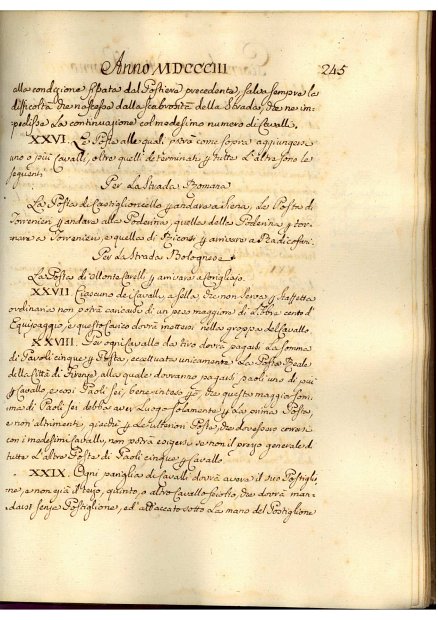 Anno MDCCCIII
245
alla condizione fissata dal Postiere precedente, salva sempre la
difficoltà che nascesse dalla scabrosità della Strada, che ne im-
pedisse la continuazione col medesimo numero di Cavalli.
XXVI. Le Poste alle quali potrà come sopra aggiungersi
uno o più Cavalli, oltre quelli determinati p tutte l'altre sono le
seguenti
Per la Strada Romana
La Posta di Castiglioncello p andare a Siena, la Posta di
Torrenieri p andare alla Poderina, quella della Poderina p tor-
nare a Torrenieri, e quella di Ricorsi p arrivare a Radicofani.
Per la Strada Bolognese
La Posta di Monte Carelli p arrivare a Covigliajo.
XXVII. Ciascuno de Cavalli a sella che non serva p Staffetta
ordinaria non potrà caricarsi di un peso maggiore di Libbre cento d'
Equipaggio, e questo carico dovrà mettersi nella groppa del Cavallo.
XXVIII. Per ogni Cavallo da tiro dovrà pagarsi la somma
di Paoli cinque p Posta, eccettuata unicamente la Posta Reale
della Città di Firenze, alla quale dovranno pagarsi paoli uno di più
p Cavallo, e così Paoli sei, beninteso però, che questa maggior som-
ma di Paoli sei debba aver luogo solamente p la prima Posta,
e non altrimenti, giacchè p le ulteriori Poste, che dovessero correr-
si con i medesimi Cavalli, non potrà esigersi se non il prezzo generale di
tutte l'altre Poste di Paoli cinque p Cavallo.
XXIX. Ogni pariglia di Cavalli dovrà avere il suo Postiglio-
ne, e non già il terzo, quinto, o altro Cavallo sciolto, che dovrà man-
darsi senza Postiglione, ed attaccato sotto la mano del Postiglione